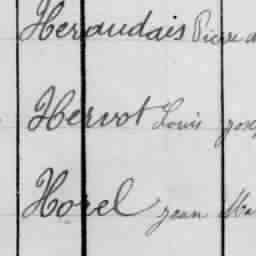 Heraudais Pierre
Hervot Louis
Horel Jean Ma